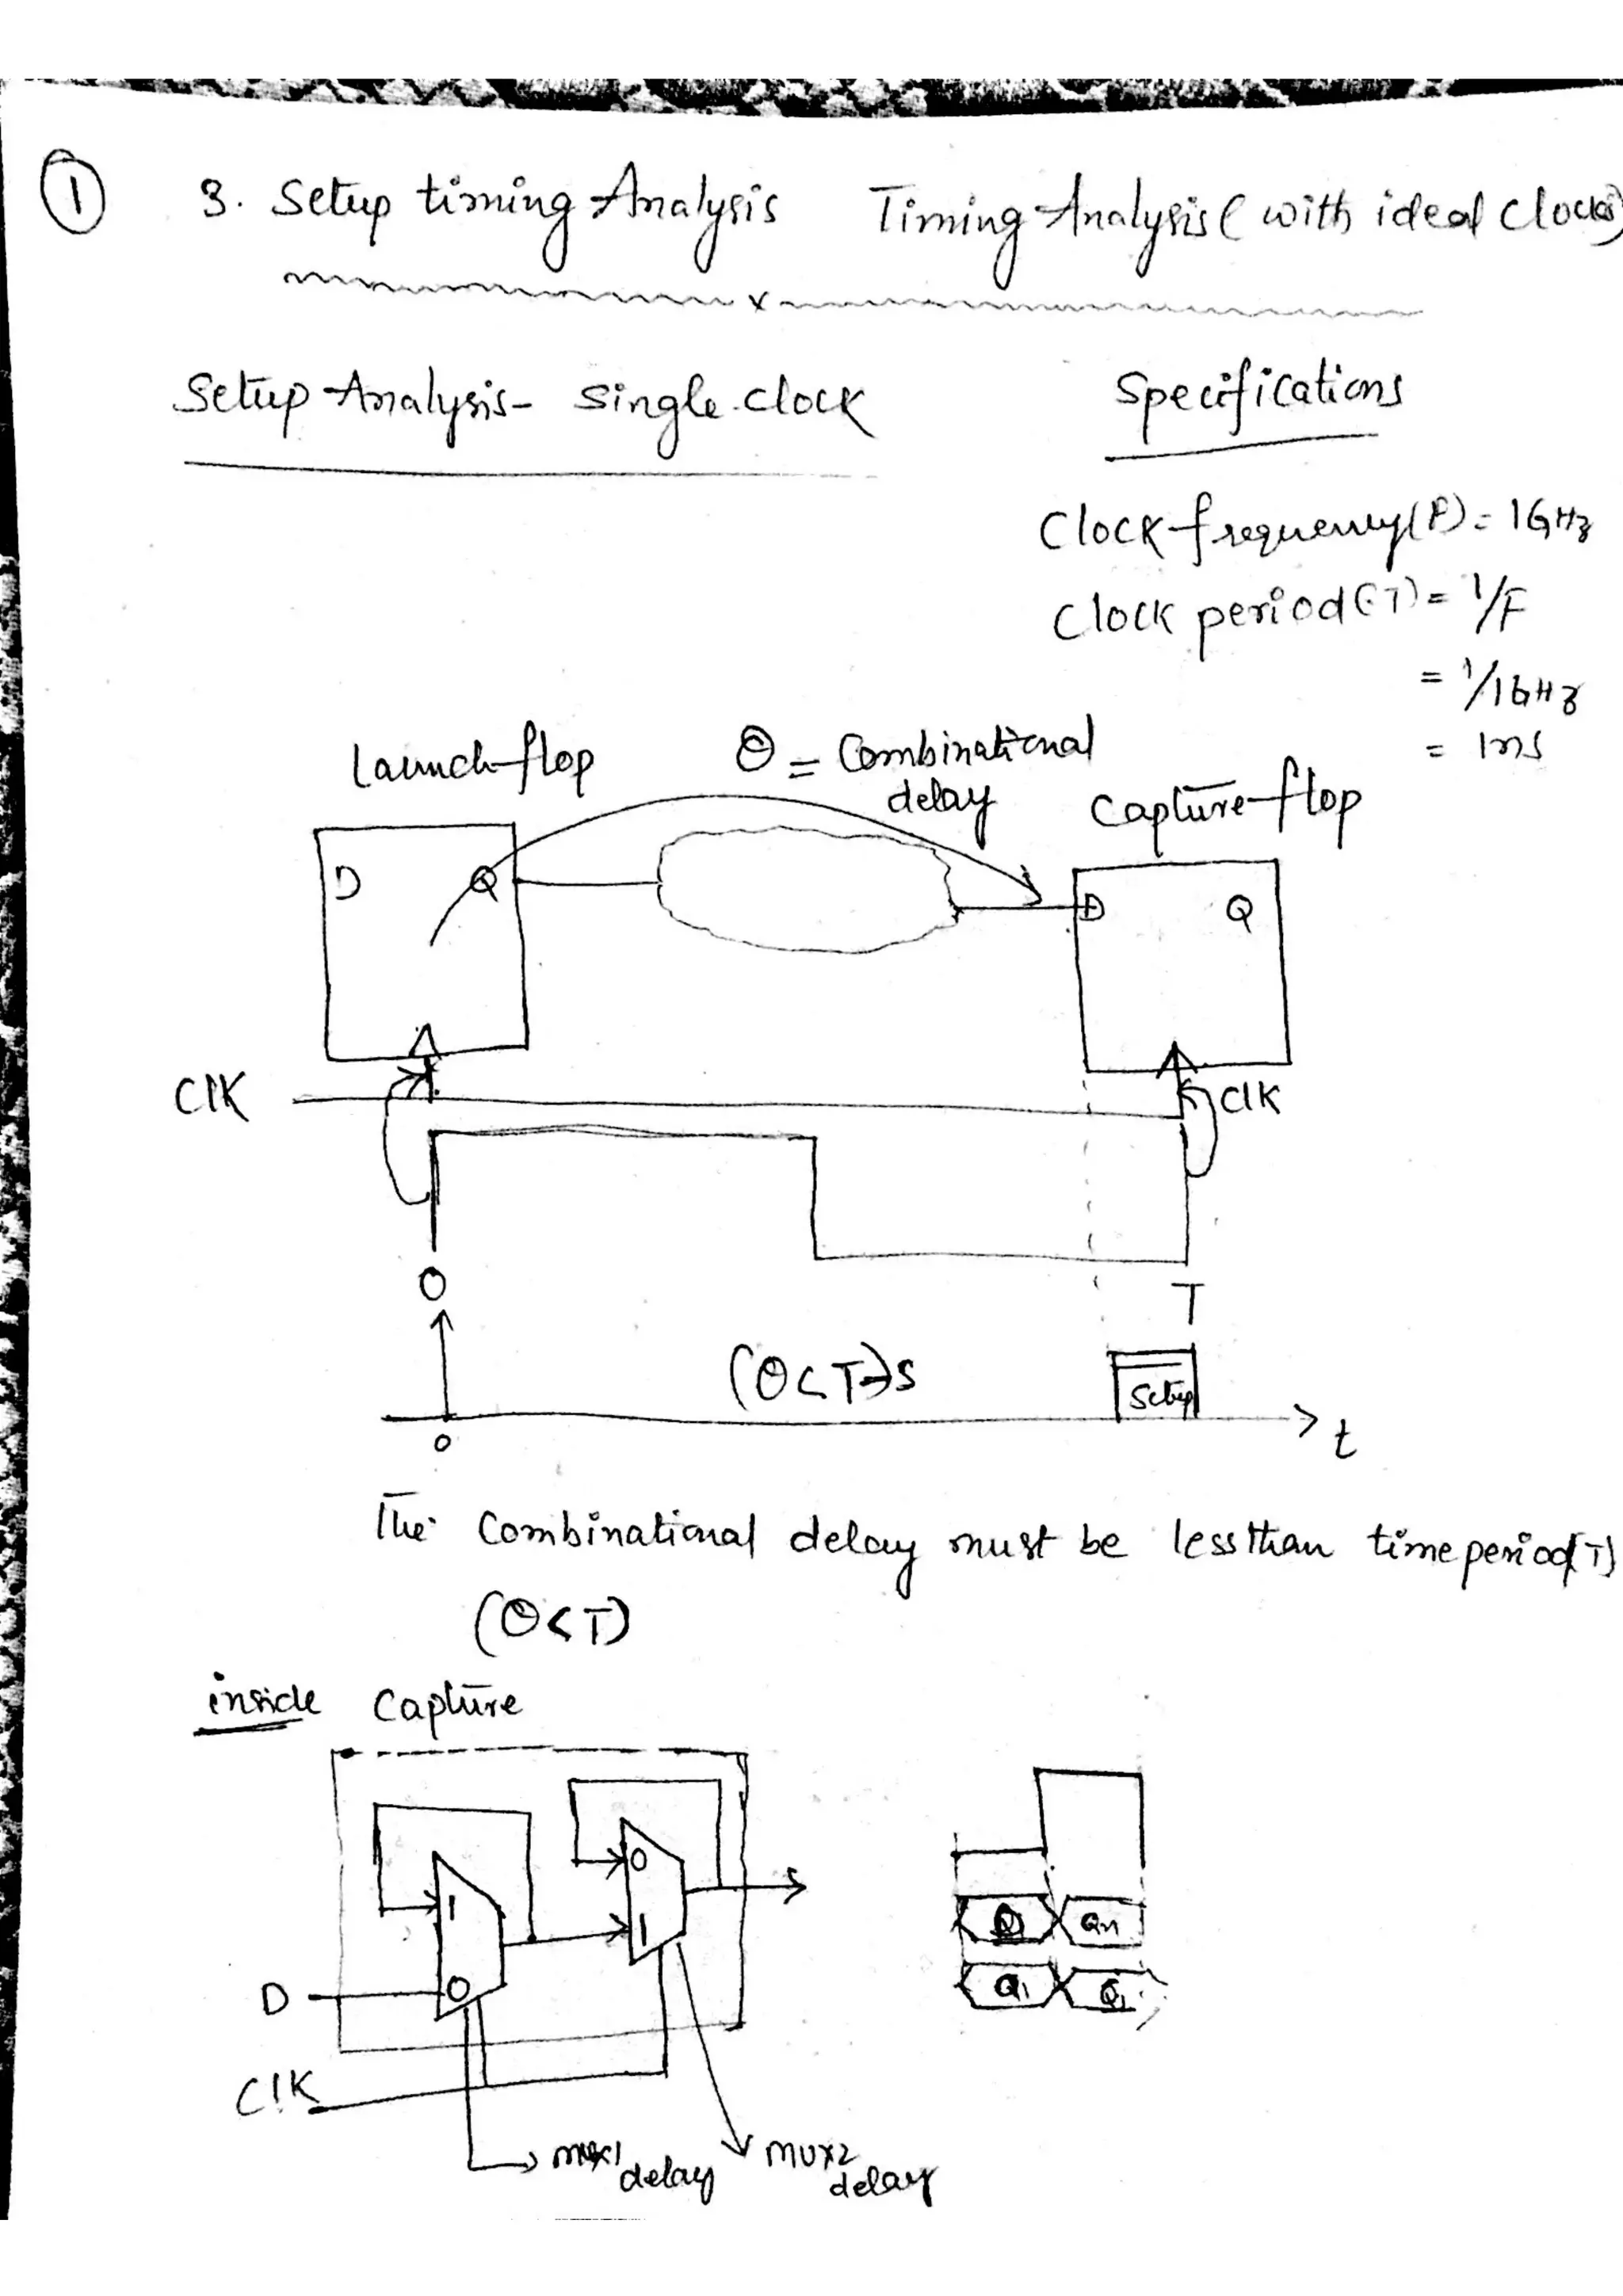 1
3. Setup timing Analysis Timing Analysis (with ideal clocks)
x
Setup Analysis- single clock Specifications
Clock frequency(F) = 1GHz
Clock period(T) = 1/F
= 1/1GHz
= 1ns
Launch flop Θ = Combinational
delay
Capture flop
D Q D Q
Clk Clk
0 T
(Θ<T)-S Setup
0 t
The Combinational delay must be less than time period(T)
(Θ<T)
inside Capture
0
1
1
Qm
0
D
Q1
Clk
mux1
delay
mux2
delay